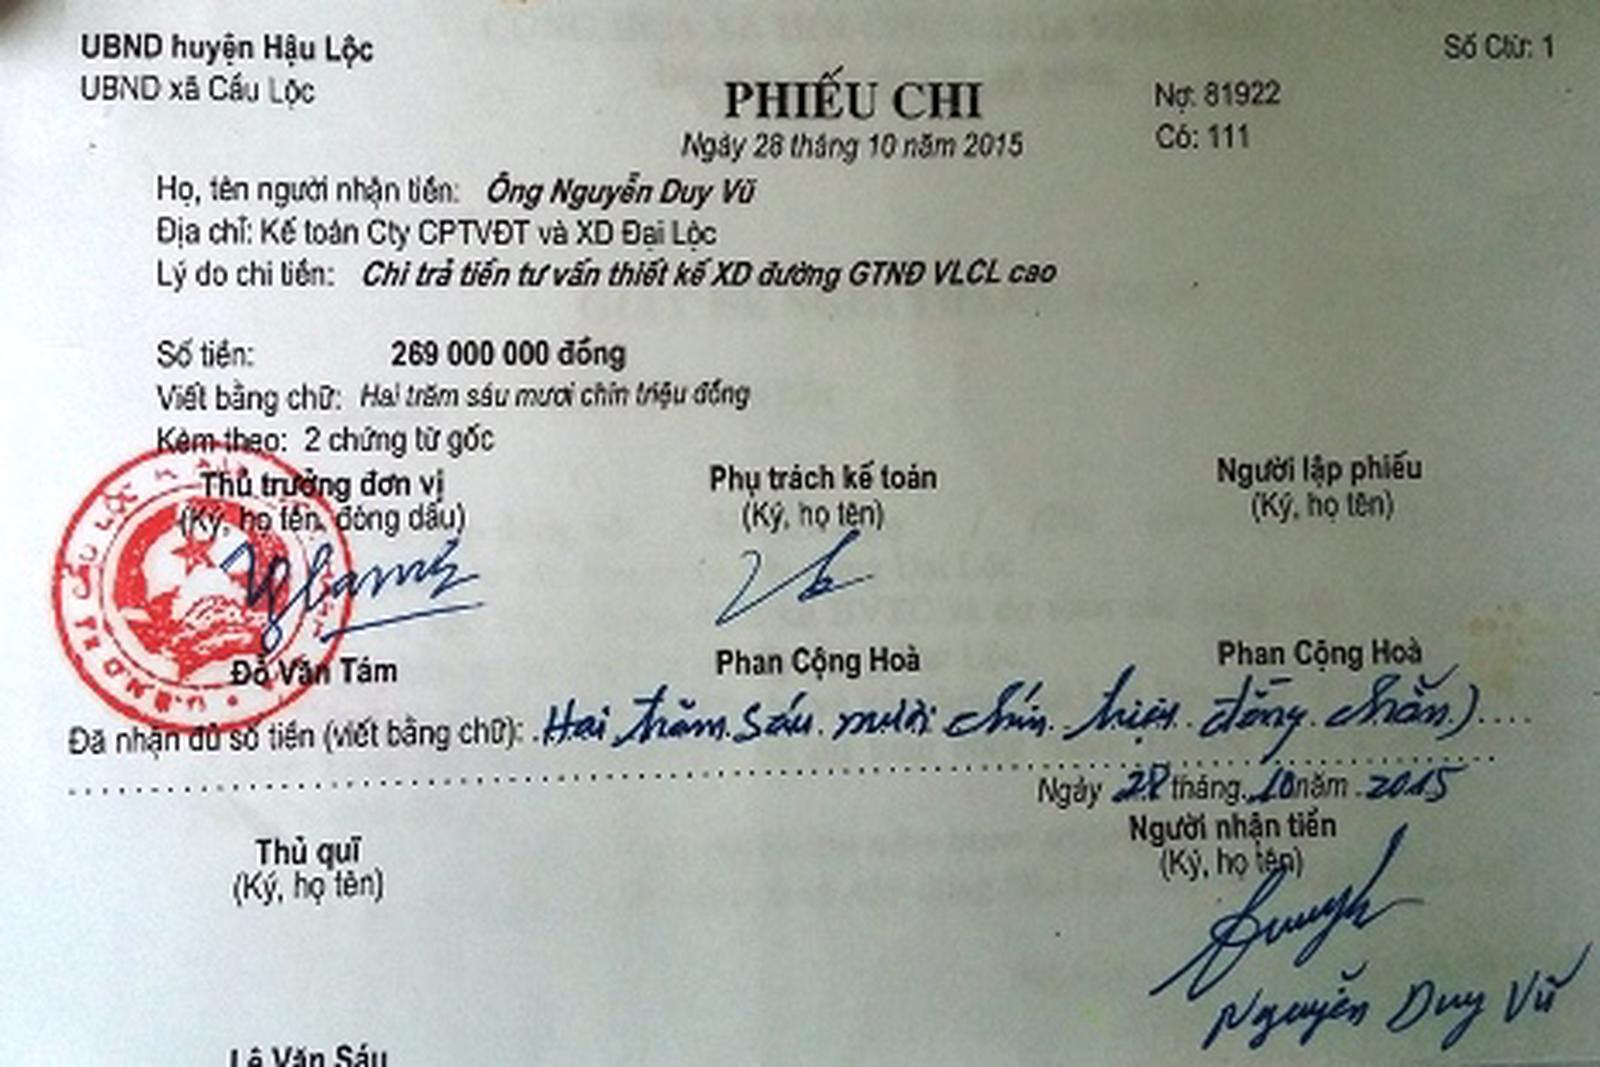 UBND huyện Hậu Lộc
Số Ctừ: 1
UBND xã Cầu Lộc
PHIẾU CHI
Nợ: 81922
Ngày 28 tháng 10 năm 2015
Có: 111
Họ, tên người nhận tiền: Ông Nguyễn Duy Vũ
Địa chỉ: Kế toán Cty CPTVĐT và XD Đại Lộc
Lý do chi tiền: Chi trả tiền tư vấn thiết kế XD đường GTNĐ VLCL cao
Số tiền: 269 000 000 đồng
Viết bằng chữ: Hai trăm sáu mươi chín triệu đồng
Kèm theo: 2 chứng từ gốc
Thủ trưởng đơn vị
Phụ trách kế toán
Người lập phiếu
(Ký, họ tên, đóng dấu)
(Ký, họ tên)
(Ký, họ tên)
U.B.N.D XÃ CẦU LỘC
Đỗ Văn Tám
Phan Cộng Hoà
Phan Cộng Hoà
Đã nhận đủ số tiền (viết bằng chữ): Hai trăm sáu mươi chín triệu đồng chẵn)
Ngày 28 tháng 10 năm 2015
Thủ quĩ
Người nhận tiền
(Ký, họ tên)
(Ký, họ tên)
Nguyễn Duy Vũ
Lê Văn Sáu